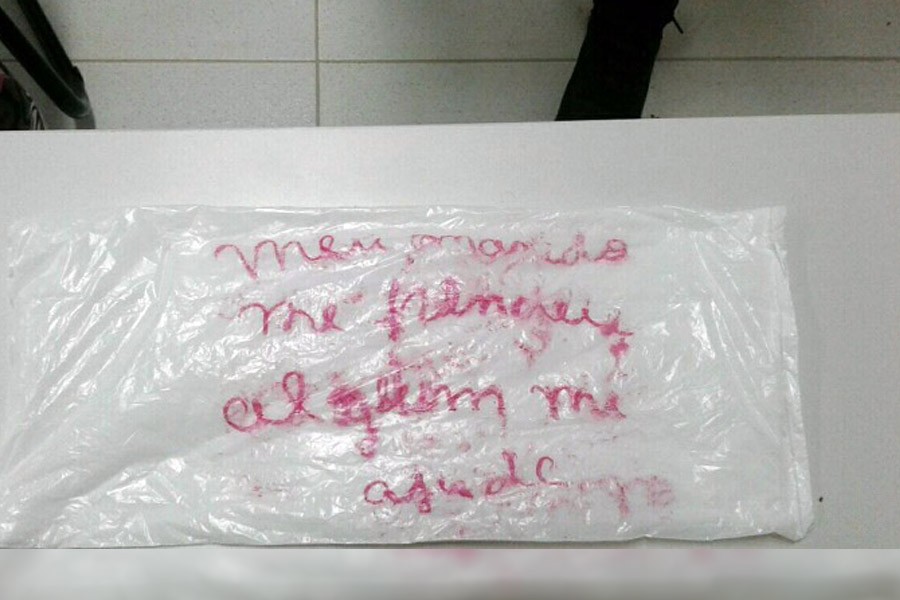 Meu marido
me prendeu
alguem me
ajude